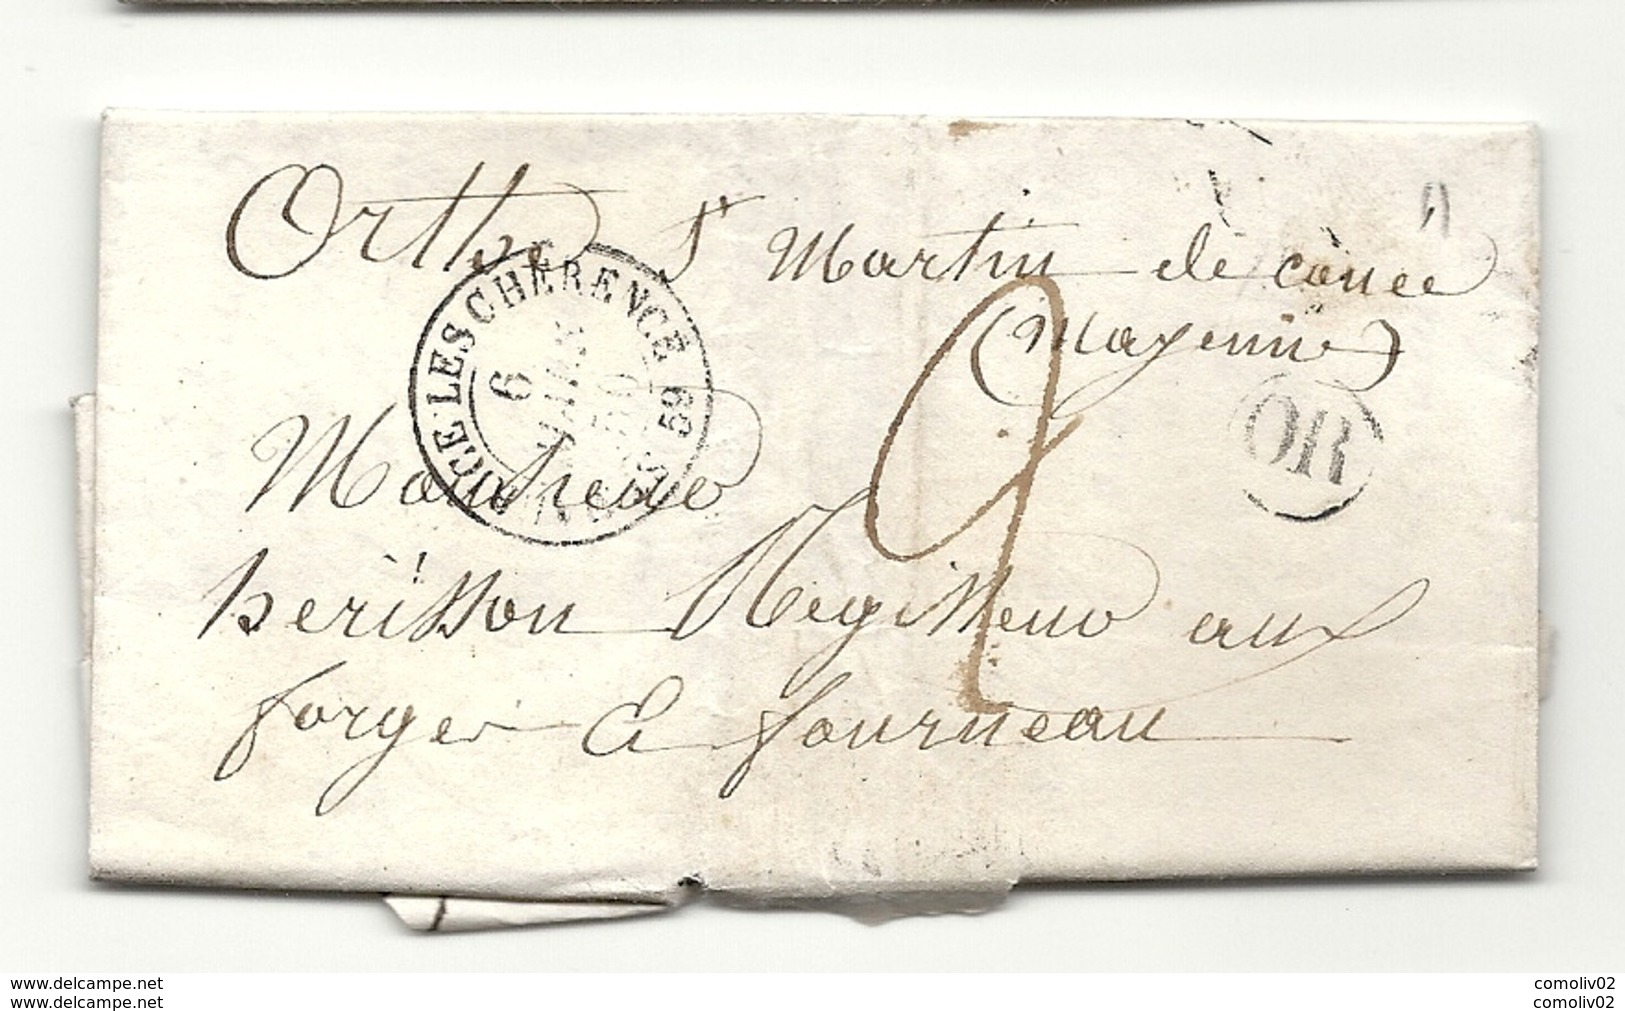 Orthe St Martin de connee
(Mayenne)
AGE LES CHÉRENCÉ 59
6
MARS
50
OR
2
Monsieur
herisson Regisseur aux
forges & fourneau
www.delcampe.net
comoliv02
www.delcampe.net
comoliv02